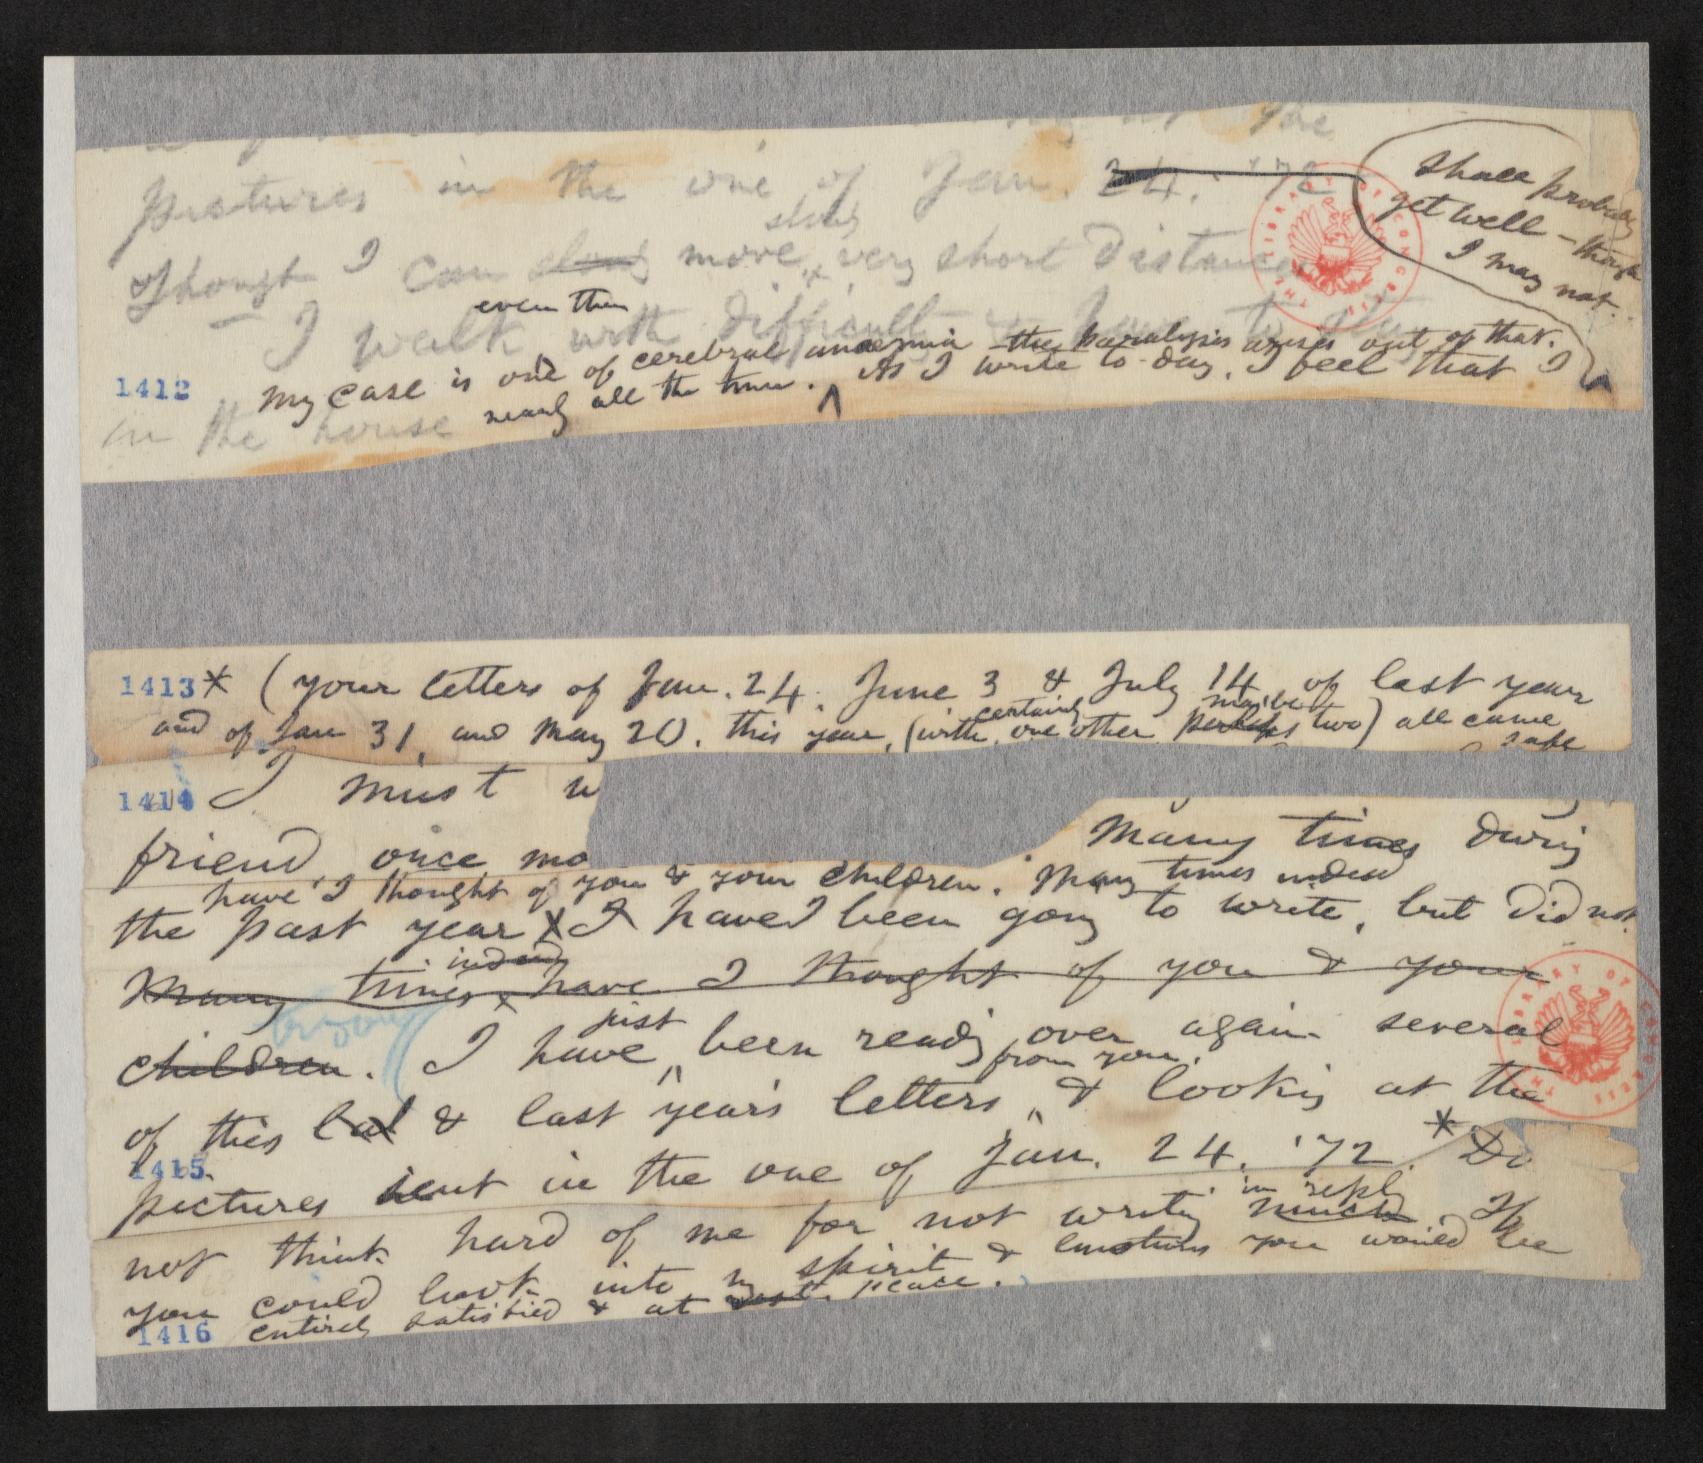 the
pictures in the one of Jan. 24. '72
slowly
Though I can slowly move, & very short distances
shall probably
get well – though
I may not.
even then
I walk with difficulty & have to stay
my case is one of cerebral anaemia the paralysis arises out of that.
1412
in the house nearly all the time. As I write to-day, I feel that I
1413 * (your letters of Jan. 24, June 3 & July 14 of last year
certainly may be
and of Jan 31, and May 20, this year, (with one other perhaps two) all came
safe
1414 I must w
friend, once mo
Many times during
have I thought of you & your children. Many times indeed
the past year I have I been going to write, but did not.
indeed
Many times, have I thought of you & your
just
children. I have been reading over again several
from you,
of this lad & last year's letters, & looking at the
1415
pictures sent in the one of Jan. 24. '72. * Do
in reply
not think hard of me for not writing much If
you could look into my spirit & emotions you would be
entirely satisfied & at rest. peace.
1416
THE LIBRARY OF CONGRESS
THE LIBRARY OF CONGRESS